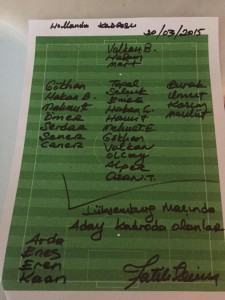 Hollanda Kadrosu
30/03/2015
Volkan B.
Hakan
Mert
Gökhan
Hakan B.
Mehmet
Ömer
Serdar
Şener
Caner
Topal
Selçuk
Emre
Hakan Ç.
Hamit
Mehmet E.
Gökhan
Volkan
Olcay
Alper
Ozan T.
Burak
Umut
Kazım
Mevlüt
Lüksemburg Maçında
Aday Kadroda olanlar
Arda
Enes
Eren
Kaan